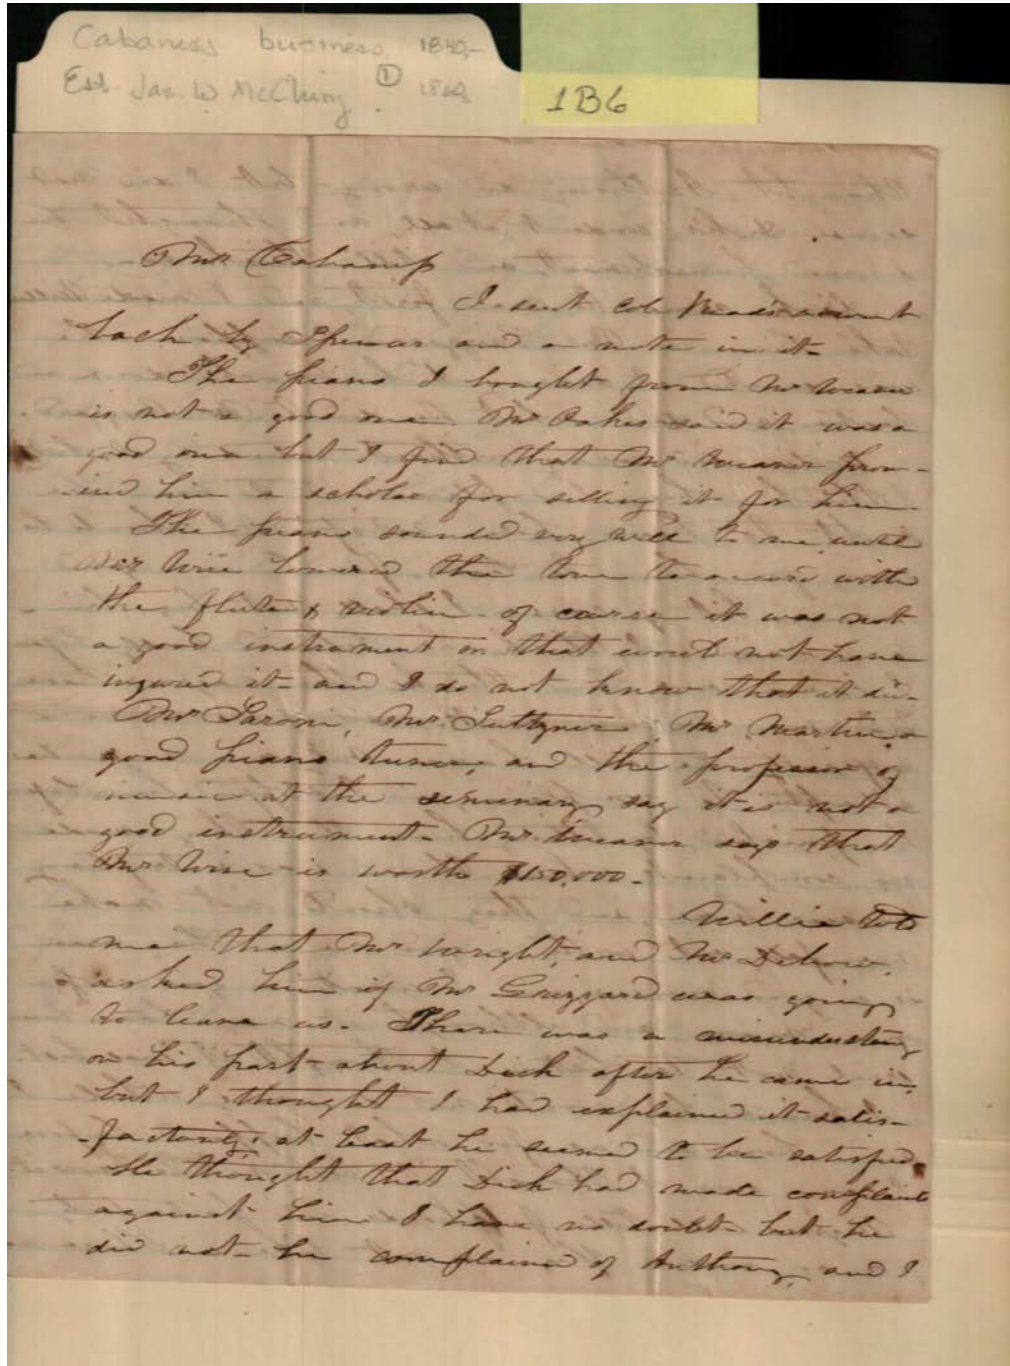 Cabaness business 1840,-
Est. Jas. W McClung ① 1860s
1B6
Mr Cabaniss
I sent Col Mead's account
back by Spencer and a note in it-
The piano I bought from Mr
is not a good one. Mr Oakes said it was a
good one but I find that Mr prom-
ised him a scholar for selling it for him.
The piano sounded very well to me until
Wise lowered the tone to accord with
the flute & violin - of course it was not
a good instrument or that would not have
injured it - and I do not know that it did-
Mr Saroni, Mr Mr Martin, a
good piano tuner, and the professor of
music at the seminary say it is not a
good instrument - Mr says that
Mr Wise is worth $150,000-
Willie told
me that Mr Wright, and Mr Debow,
asked him if Mr Grizzard was going
to leave us. There was a misunderstang
on his part - about Dick after he came in,
but I thought I had explained it satis-
-factorily, at least he seemed to be satisfied.
He thought that Dick had made complaints
against him I have no doubt - but he
did not - he complained of Anthony, and I